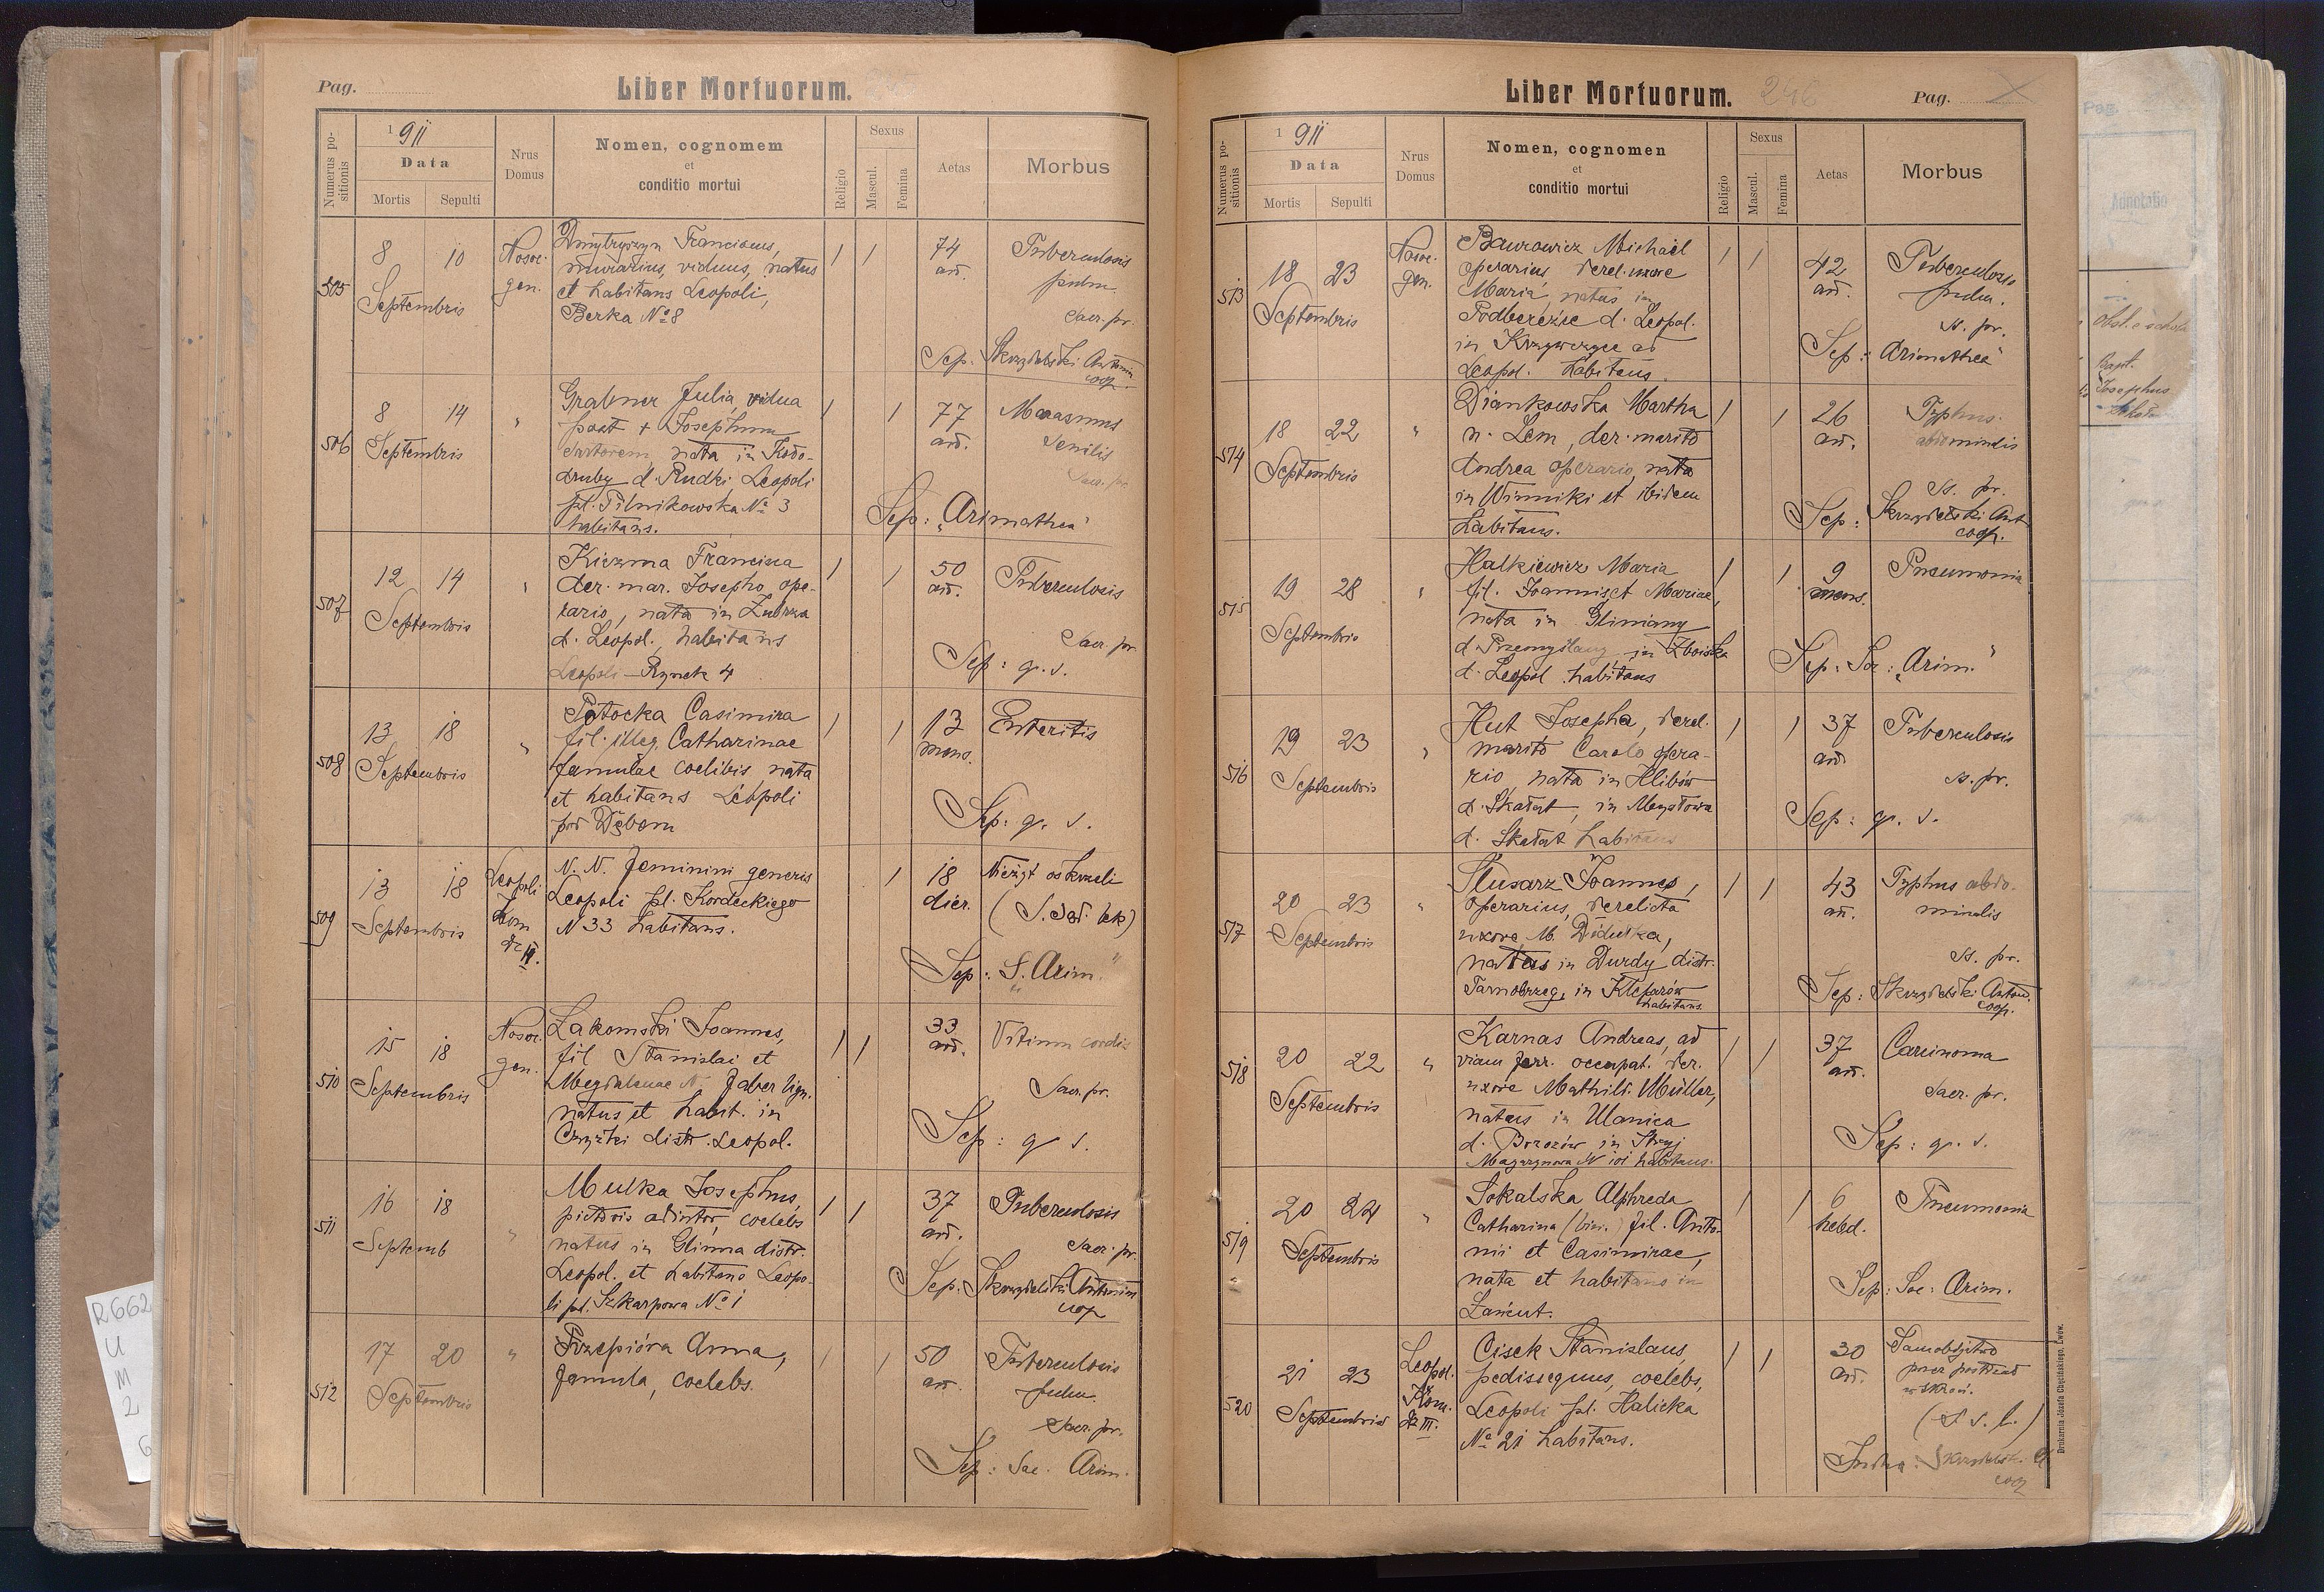 Pag.
Liber Mortuorum.
Numerus positionis
1911
Data
Mortis
Sepulti
Nrus Domus
Nomen, cognomem
et
conditio mortui
Religio
Sexus
Mascul.
Femina
Aetas
Morbus
505
8 10
Septembris
Nosoc.
gen.
Dmytryszyn Franciscus,
murarius, viduus, natus
et habitans Leopoli,
Berka No 8
1 1
74
an.
Tuberculosis
pulm.
Sacr. pr.
Sep. Skrzydelski Antonius
coop.
506
8 14
Septembris
"
Grabner Julia, vidua
post + Josephum
sartorem, nata in Kodo-
druby d. Rudki Leopoli
pl. Pilnikowska No 3
habitans.
1 1
77
an.
Marasmus
senilis
Sacr. pr.
Sep: "Arimathea"
507
12 14
Septembris
"
Kiczma Francisca
der. mar. Josepho, ope-
rario, nata in Zubrza
d. Leopol., habitans
Leopoli - Rynek 4
1 1
50
an.
Tuberculosis
Sacr. pr.
Sep: g. s.
508
13 18
Septembris
"
Potocka Casimira
fil. illeg. Catharinae
famulae coelibis, nata
et habitans Leopoli
pod Dębem
1 1
13
mens.
Enteritis
Sep: g. s.
509
13 18
Septembris
Leopoli
Kom
dz III.
N. N. feminini generis
Leopoli pl. Kordeckiego
N 33 habitans.
1
18
dier.
Nieżyt oskrzeli
(S. sąd. lek)
Sep: S. "Arim."
510
15 18
Septembris
Nosoc.
gen.
Łakomski Joannes,
fil Stanislai et
Magdalenae N. faber lign.
natus et habit. in
Czyżki distr. Leopol.
1 1
33
an.
Vitium cordis
Sacr. pr.
Sep: g s.
511
16 18
Septemb
"
Mulka Josephus,
pictoris adiutor, coelebs
natus in Glinna distr.
Leopol. et habitans Leopo-
li pl. Szkarpowa No 1
1 1
37
an.
Tuberculosis
Sacr. pr.
Sep: Skrzydelski Antonius
coop
512
17 20
Septembris
"
Przepióra Anna,
famula, coelebs.
1 1
50
an.
Tuberculosis
pulm.
Sacr. pr.
Sep: Soc. Arim.
Liber Mortuorum.
246
Pag.
Numerus positionis
1911
Data
Mortis
Sepulti
Nrus Domus
Nomen, cognomen
et
conditio mortui
Religio
Sexus
Mascul.
Femina
Aetas
Morbus
513
18 23
Septembris
Nosoc.
gen.
Baurowicz Michael
operarius derel. uxore
Maria, natus in
Podbereźce d. Leopol.
in Krzywczyce ad
Leopol. habitans.
1 1
42
an.
Tuberculosis
pulm.
ss. pr.
Sep: "Arimathea"
514
18 22
Septembris
"
Diankowska Martha
n. Lem, der. marito
Andrea operario, nata
in Winniki et ibidem
habitans.
1 1
26
an.
Typhus
abdominalis
ss. pr.
Sep: Skrzydelski Ant
coop.
515
19 28
Septembris
"
Halkiewicz Maria
fil. Joannis et Mariae,
nata in Gliniany
d. Przemyślany in Zboiska
d. Leopol. habitans
1 1
9
mens.
Pneumonia
Sep: Soc: "Arim."
516
19 23
Septembris
"
Hut Josepha, derel.
marito Carolo opera-
rio, nata in Hlibów
d. Skałat, in Mysłowa
d. Skałat habitans
1 1
37
an.
Tuberculosis
ss. pr.
Sep: g. s.
517
20 23
Septembris
"
Ślusarz Joannes,
operarius, derelicta
uxore M. Didulka,
natus in Durdy distr.
Tarnobrzeg, in Kleparów
habitans.
1 1
43
an.
Typhus abdo-
minalis
ss. pr.
Sep: Skrzydelski Anton.
coop.
518
20 22
Septembris
"
Karnas Andreas, ad
viam ferr. occupat. der.
uxore Mathild. Müller,
natus in Ulanica
d. Brzozów in Stryj
Magazynowa N 101 habitans.
1 1
37
an.
Carcinoma
Sacr. pr.
Sep: g. s.
519
20 24
Septembris
"
Sokalska Alphreda
Catharina (bin.) fil. Anto-
nii et Casimirae,
nata et habitans in
Łańcut.
1 1
6
hebd.
Pneumonia
Sep: Soc: Arim.
520
21 23
Septembris
Leopol.
Kom.
dz III.
Cisek Stanislaus
pedissequus, coelebs,
Leopoli pl. Halicka
No 21 habitans.
1 1
30
an.
Samobójstwo
przez postrzał
w skroń.
(s. s. l.)
Skrzydelski A
coop
Drukarnia Józefa Chęcińskiego, Lwów.
Pag.
Adnotatio
Bapt.
Josephus
R662
U
M
2
6